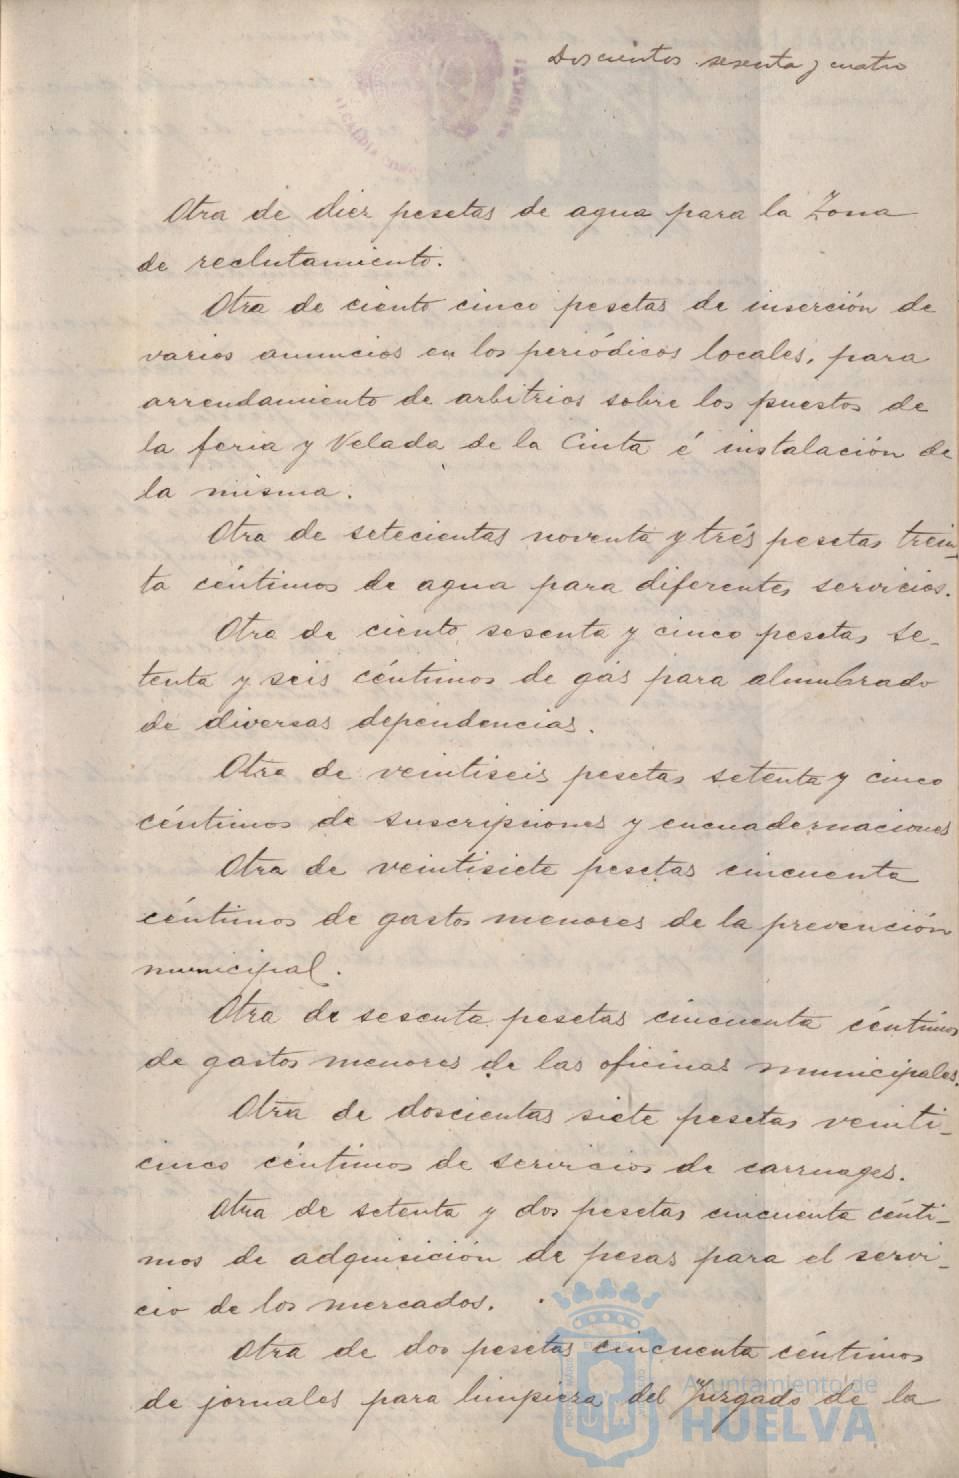 Doscientos sesenta y cuatro
Otra de diez pesetas de agua para la Zona
de reclutamiento.
Otra de ciento cinco pesetas de inserción de
varios anuncios en los periódicos locales, para
arrendamiento de arbitrios sobre los puestos de
la feria y Velada de la Cinta é instalación de
la misma.
Otra de setecientas noventa y trés pesetas trein-
ta céntimos de agua para diferentes servicios.
Otra de ciento sesenta y cinco pesetas se-
tenta y seis céntimos de gás para alumbrado
de diversas dependencias.
Otra de veintiseis pesetas setenta y cinco
céntimos de suscripciones y encuadernaciones
Otra de veintisiete pesetas cincuenta
céntimos de gastos menores de la prevención
municipal.
Otra de sesenta pesetas cincuenta céntimos
de gastos menores de las oficinas municipales.
Otra de doscientas siete pesetas veinti-
cinco céntimos de servicios de carruages.
Otra de setenta y dos pesetas cincuenta cénti-
mos de adquisición de pesas para el servi-
cio de los mercados.
Otra de dos pesetas cincuenta céntimos
de jornales para limpieza del Juzgado de la
Ayuntamiento de
HUELVA